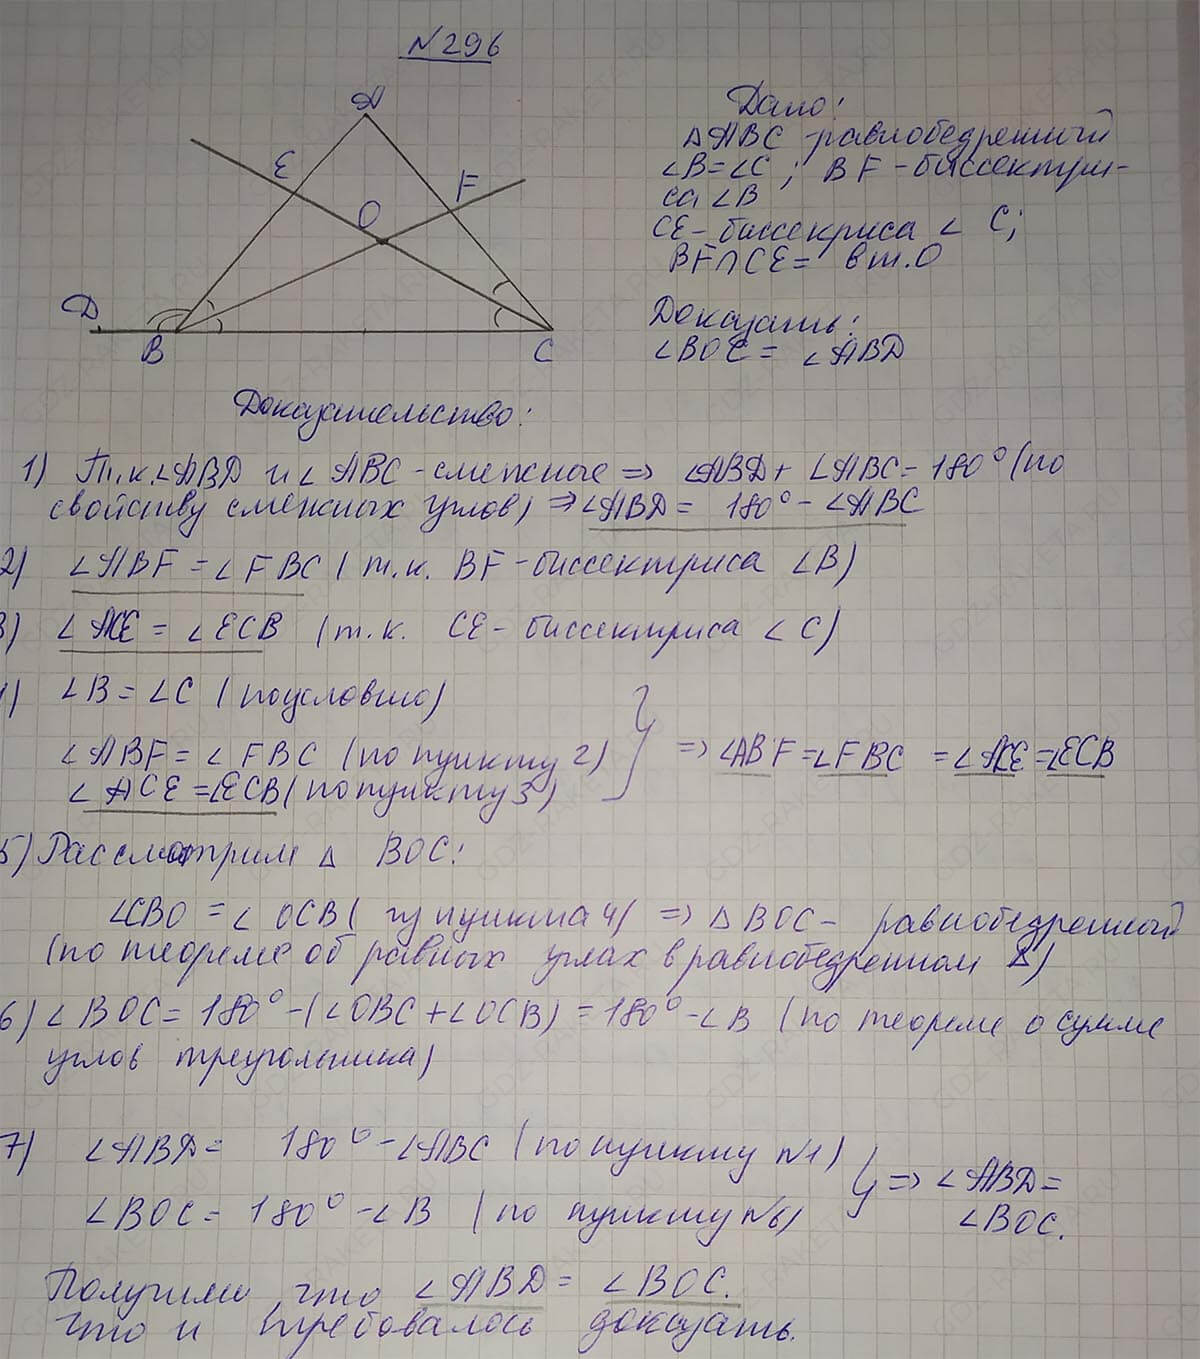 №296
A
E
F
O
D
B
C
Дано:
△ABC-равнобедренный
∠B=∠C; BF-биссектри-
са ∠B
CE-биссекриса ∠ C;
BF∩CE= в т.О
Доказать:
∠BOC= ∠ABD
Доказательство:
1) Т.к.∠ABD и ∠ABC-смежные => ∠ABD+ ∠ABC=180°(по
свойству смежных углов) =>∠ABD= 180°-∠ABC
2) ∠ABF=∠FBC (т.к. BF-биссектриса ∠B)
3) ∠ACE= ∠ECB (т.к. CE-биссектриса ∠C)
4) ∠B=∠C (по условию)
∠ABF=∠FBC (по пункту 2)
∠ACE=∠ECB(по пункту 3)
} => ∠ABF=∠FBC =∠ACE=∠ECB
5) Рассмотрим △ BOC:
∠CBO =∠OCB( из пункта 4) => △BOC- равнобедренный
(по теореме об равных углах в равнобедренном △)
6) ∠BOC=180°-(∠OBC+∠OCB)=180°-∠B (по теореме о сумме
углов треугольника)
7) ∠ABD= 180°-∠ABC (по пункту №1)
∠BOC= 180°-∠B (по пункту №6)
} => ∠ABD=
∠BOC.
Получили, что ∠ABD= ∠BOC.
Что и требовалось доказать.